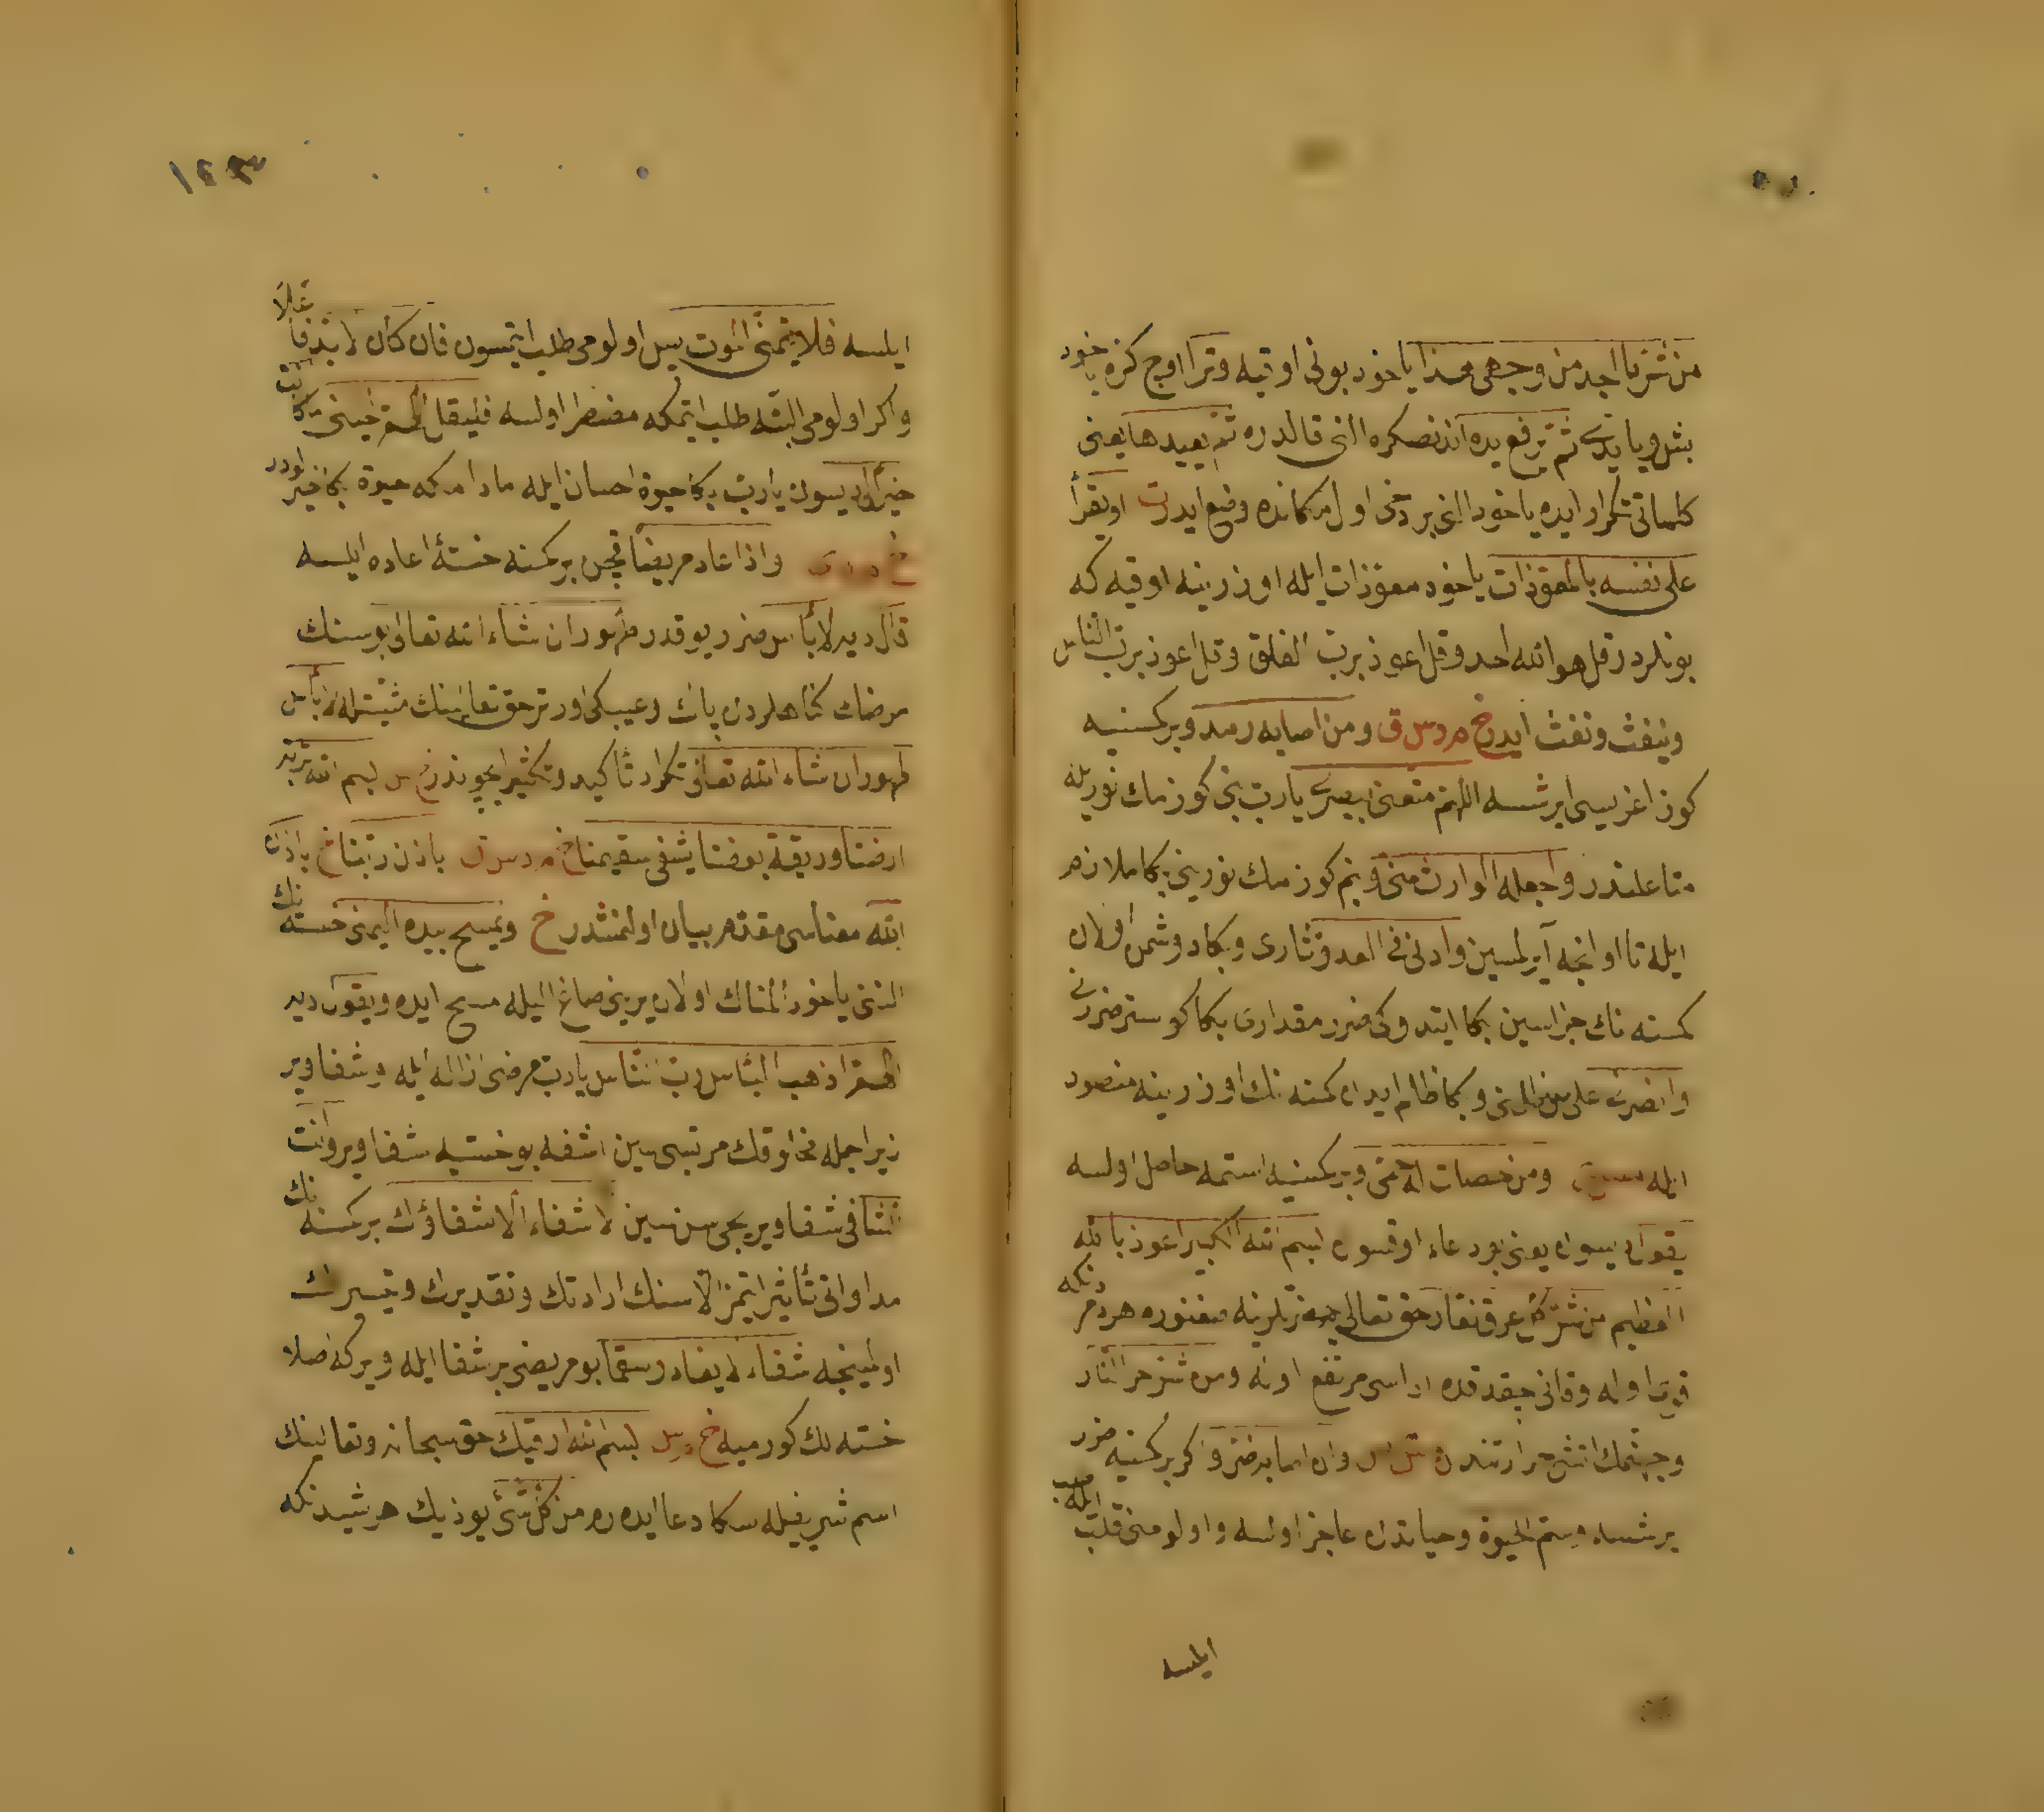 من شر ما اجد من وجعى هذا ياخود بونى اوقيه وترا اوچ كره ياخود
بش ويا يدى ثم يرفع يده اندنصكره النى قالدره ثم يعيدها يعنى
كلماتى تكرار ايده ياخود النى بر دخى اول مكانده وضع ايده ت او يقرأ
على نفسه بالمعوذات ياخود معوذات ايله اوزرينه اوقيه كه
بونلردر قل هو الله احد وقل اعوذ برب الفلق وقل اعوذ برب الناس
وينفث ونفث ايده خ م د س ق ومن اصابه رمد وبر كمسنيه
كوز اغريسى ايرشسه اللهم متعنى ببصرى يا رب بنى كوزمك نوريله
متاعلندر واجعله الوارث منى وبنم كوزمك نورينى بكا ملازم
ايله تا اولنجه آيرلمسين وارنى فى العدو ثارى وبكا دوشمن اولان
كمسنه نك جزاسين بكا ايتدوكى ضرر مقدارى بكا كوستر
وانصرنى على من ظلمنى وبكا ظلم ايدن كمسنه نك اوزرينه منصور
ايله ومن حصلت له حمى وبر كمسنيه استمه حاصل اولسه
يقول ديسون يعنى بو دعاء اوقسون بسم الله الكبير اعوذ بالله
العظيم من شر كل عرق نعار حق تعالى حضرتلرينه صغنورم هر دمر دنكه
قوى اوله وقانى چقدقده اداسى مرتفع اوله ومن شر حر النار
وجهنمك اتشى حرارتندن وان اصابه ضر واكر بر كمسنيه ضرر
يرشسه وسئم الحيوة وحياتدن عاجز اولسه واولومنى قلب ايله
ايلسه
١٢٣
ايلسه فلا يتمنى الموت پس اولومى طلب ايتمسون فان كان لا بد فاعلا
واكر اولومى البته طلب ايتمكه مضطر اولسه فليقل اللهم احينى ما كانت
خيرا لى ديسون يا رب بكا حيوة احسان ايله مادامكه حيوة بكا خيرلودر
خ م د ت س واذا عاد مريضا قچن بر كمسنه خسته اعاده ايلسه
قال دير لا بأس ضرر يوقدر طهور ان شاء الله تعالى بو سنك
مرضك كناهلردن پاك وعيبكى اورتر حق تعالينك مشيتله لا بأس
طهور ان شاء الله تعالى تكرار تأكيد وتكثير ايچوندر خ س بسم الله تربة
ارضنا وريقة بعضنا يشفى سقيمنا خ م د س ق باذن ربنا خ باذن
الله معناسى مقدم بيان اولنمشدر خ ويمسح بيده اليمنى خسته نك
النى ياخود المناك اولان يرينى صاغ اليله مسح ايده ويقول دير
اللهم اذهب البأس رب الناس يا رب مرضى ازاله ايله وشفا وير
زيرا جمله مخلوقك مربيسى سين اشفه بو خسته يه شفا وير وانت
الشافى شفا ويريجى سن سين لا شفاء الا شفاؤك بر كمسنه نك
مداواتى تأثير ايتمز الا سنك ارادتك وتقديرك وتيسيرك
اولمينجه شفاء لا يغادر سقما بو مريضى بر شفا ايله وير كه اصلا
خسته لك كورميه خ م س بسم الله ارقيك حق سبحانه وتعالينك
اسم شريفيله سكا دعا ايده رم من كل شئ يوذيك هر شيدنكه